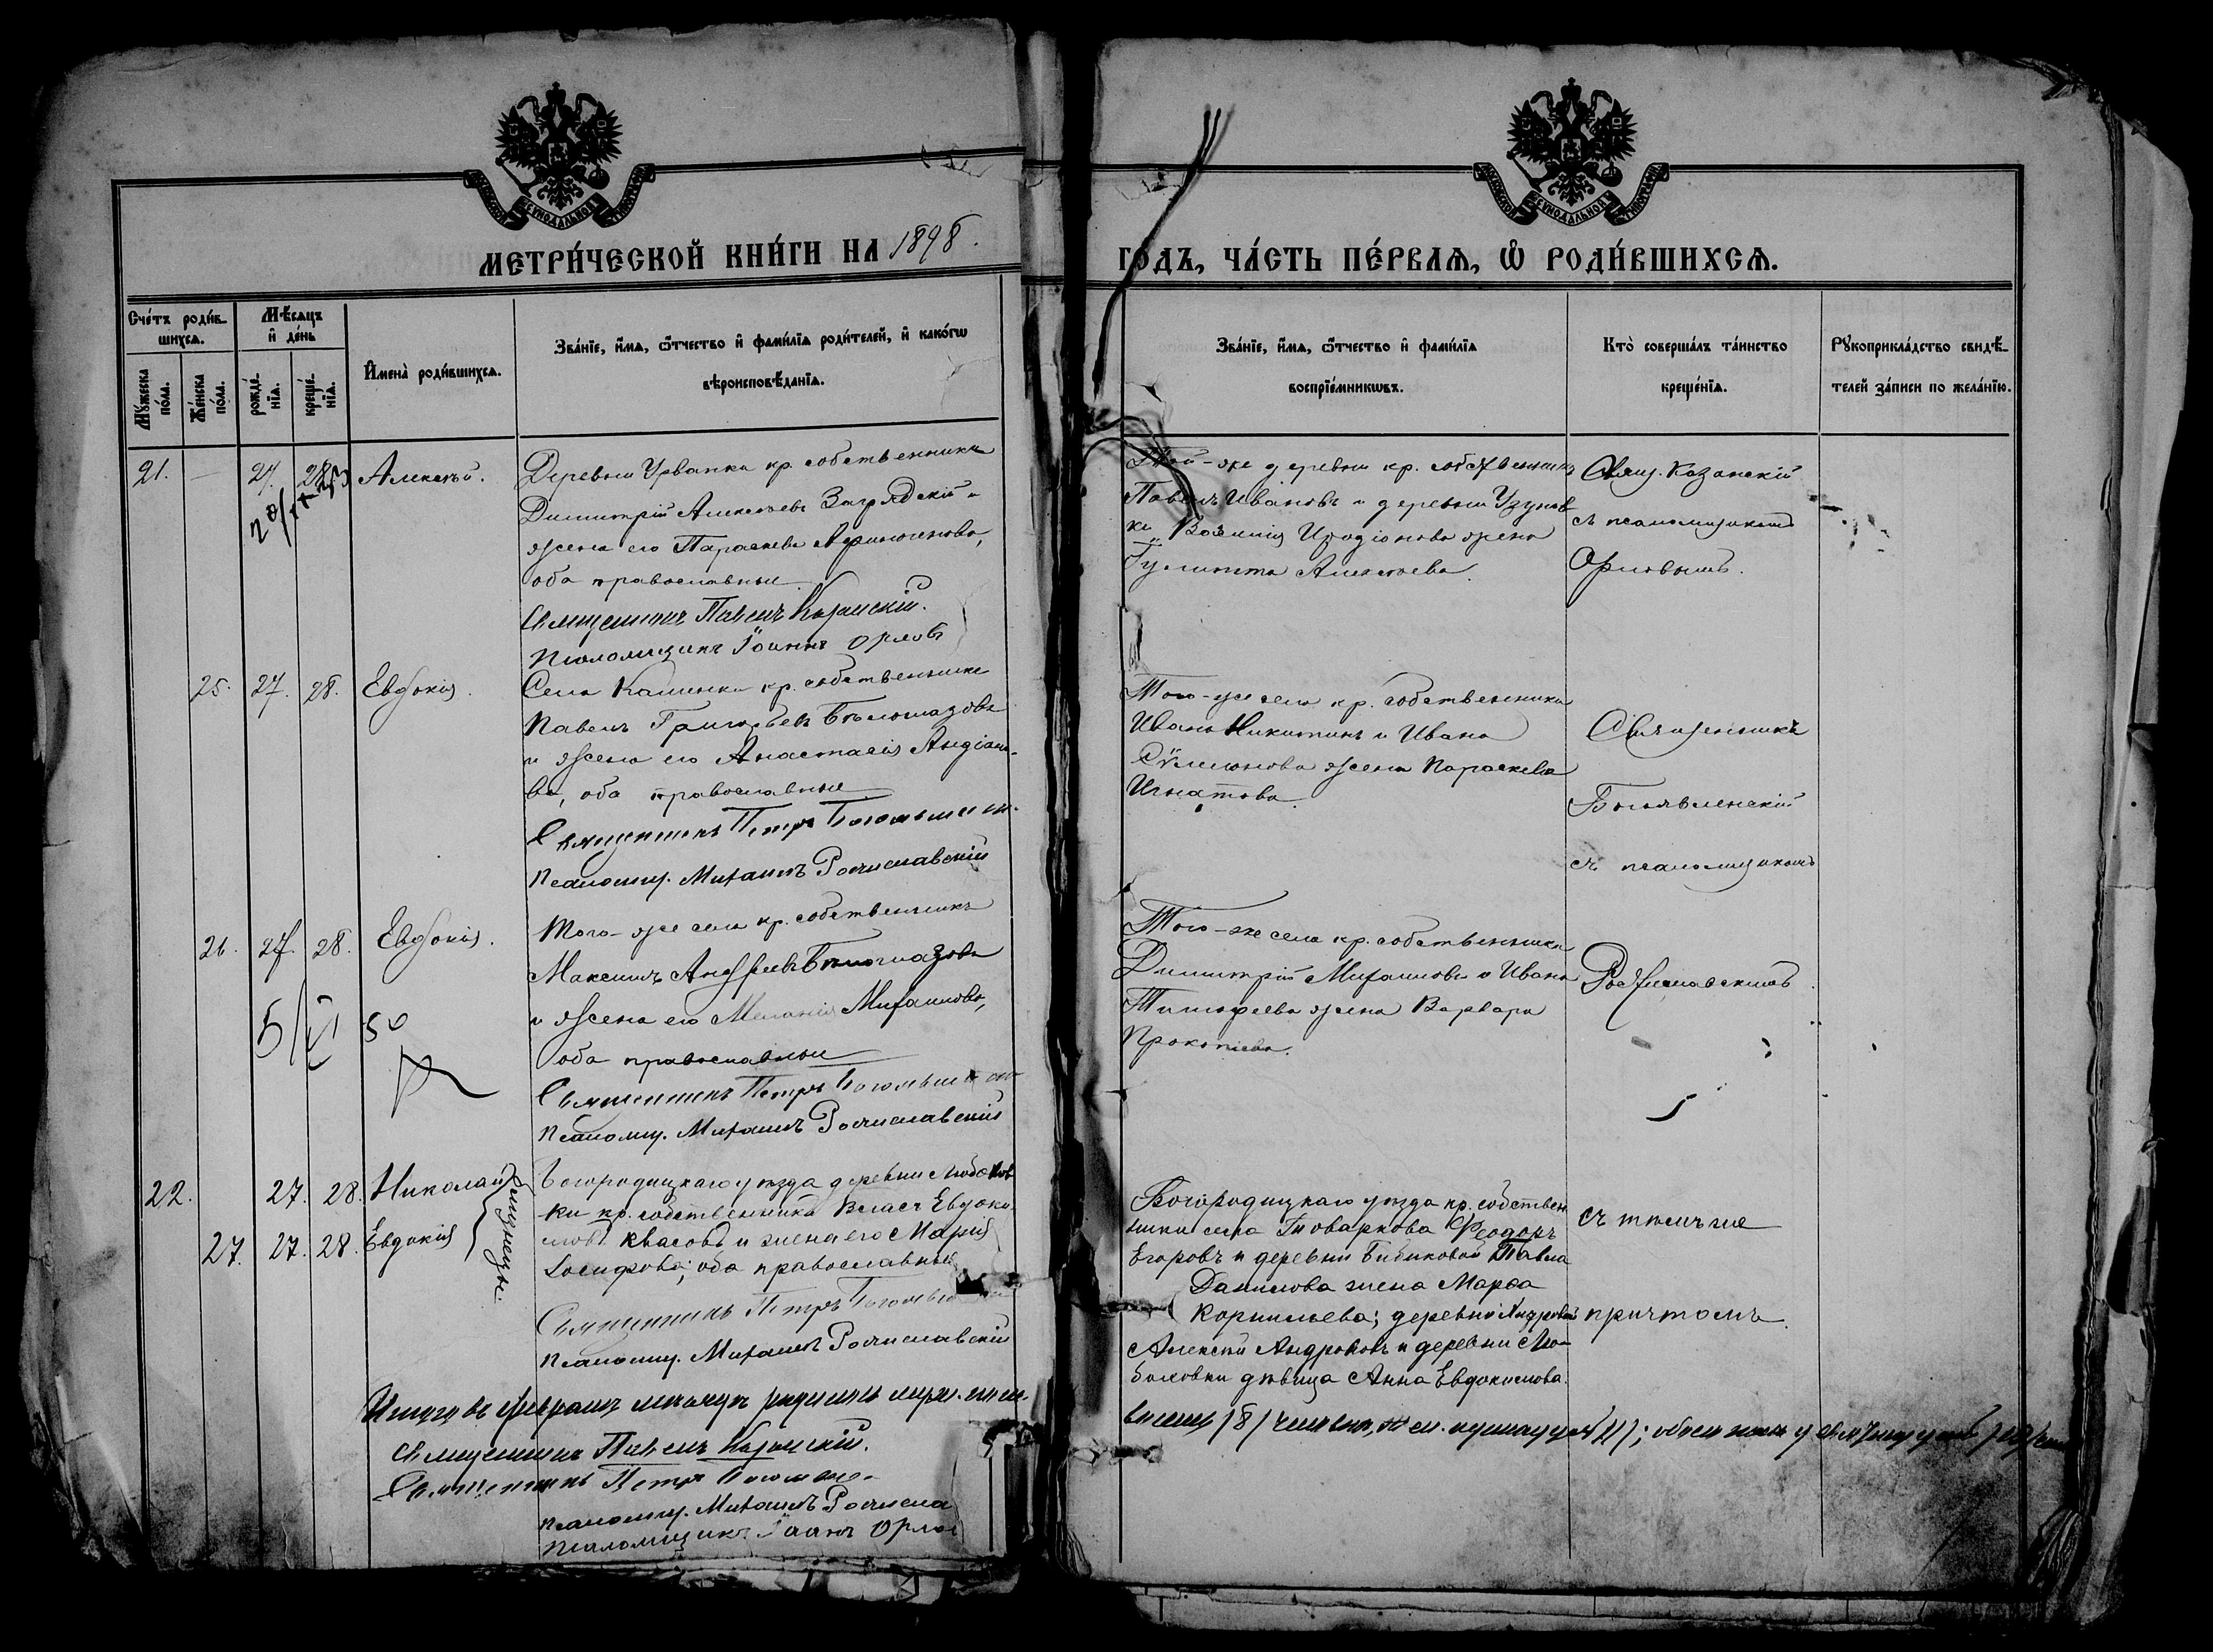 МЕТРИ́ЧЕСКОЙ КНИ́ГИ НА 1898.
ГОДЪ, ЧА́СТЬ ПЕ́РВАѦ, Ѡ РОДИ́ВШИХСѦ.
Сче́тъ роди́в-
шихсѧ.
Мѣ́сѧцъ
и҆ де́нь
Мꙋ́жеска
по́ла.
Же́нска
по́ла.
рожде́-
нїѧ.
креще́-
нїѧ.
И҆мена̀ роди́вшихсѧ.
Зва́нїе, и҆́мѧ, ѻ҆́тчество и҆ фами́лїѧ роди́телей, и҆ како́гѡ
вѣроисповѣ́данїѧ.
Зва́нїе, и҆́мѧ, ѻ҆́тчество и҆ фами́лїѧ
воспрїе́мникѡвъ.
Кто̀ соверша́лъ та́инство
креще́нїѧ.
Рꙋкоприкла́дство свидѣ́-
телей за́писи по жела́нїю.
21. — 27. 28. Алексѣй.
Деревни Урванки кр. собственникъ
Димитрій Алексѣевъ Загрядскій и
жена его Параскева Афиногенова,
оба православные
Священникъ Павелъ Казанскій.
Псаломщикъ Іоаннъ Орловъ
Той-же деревни кр. собственникъ
Павелъ Ивановъ и деревни Узунов
ки Иродіонова жена
Гулитта Алексѣева.
Свящ. Казанскій
съ псаломщикомъ
Орловымъ.
25. 27. 28. Евдокія.
Села кр. собственникъ
Павелъ Григорьевъ Бѣлоглазовъ
и жена его Анастасія Андіано-
ва, оба православные
Священникъ Петръ
Псаломщ. Михаилъ Ростиславскій
Того-же села кр. собственники
Иванъ Никитинъ и Ивана
Сѵмеонова жена Параскева
Игнатова.
Священникъ
Богоявленскій
съ псаломщикомъ
Ростиславскимъ
26. 27. 28. Евдокія.
Того-же села кр. собственникъ
Максимъ Андреевъ Бѣлоглазовъ
и жена его Меланія Михаилова,
оба православные
Священникъ Петръ
Псаломщ. Михаилъ Ростиславскій
Того-же села кр. собственники
Димитрій Михаиловъ и Ивана
Тимофеева жена Варвара
Прокопіева.
22. 27. 28. Николай
27. 27. 28. Евдокія
близнецы.
Богородицкаго уѣзда деревни Любов
ки кр. собственникъ Власъ Евдоки
мовъ Квасовъ и жена его Марія
Іосифова; оба православные
Священникъ Петръ
Псаломщ. Михаилъ Ростиславскій
Богородицкаго уѣзда кр. собствен
ники села Товаркова Ѳеодоръ
Егоровъ и деревни Бибиковой Павла
Данилова жена Марѳа
Корнильева; деревни
Алексѣй Андроновъ и деревни Лю-
бовки дѣвица Анна Евдокимова.
съ тѣмъ же
причтомъ.
Итого въ февралѣ мѣсяцѣ родилось муж.
Священникъ Павелъ Казанскій.
Священникъ Петръ
Псаломщ. Михаилъ Ростисла
Псаломщикъ Іоаннъ Орлов